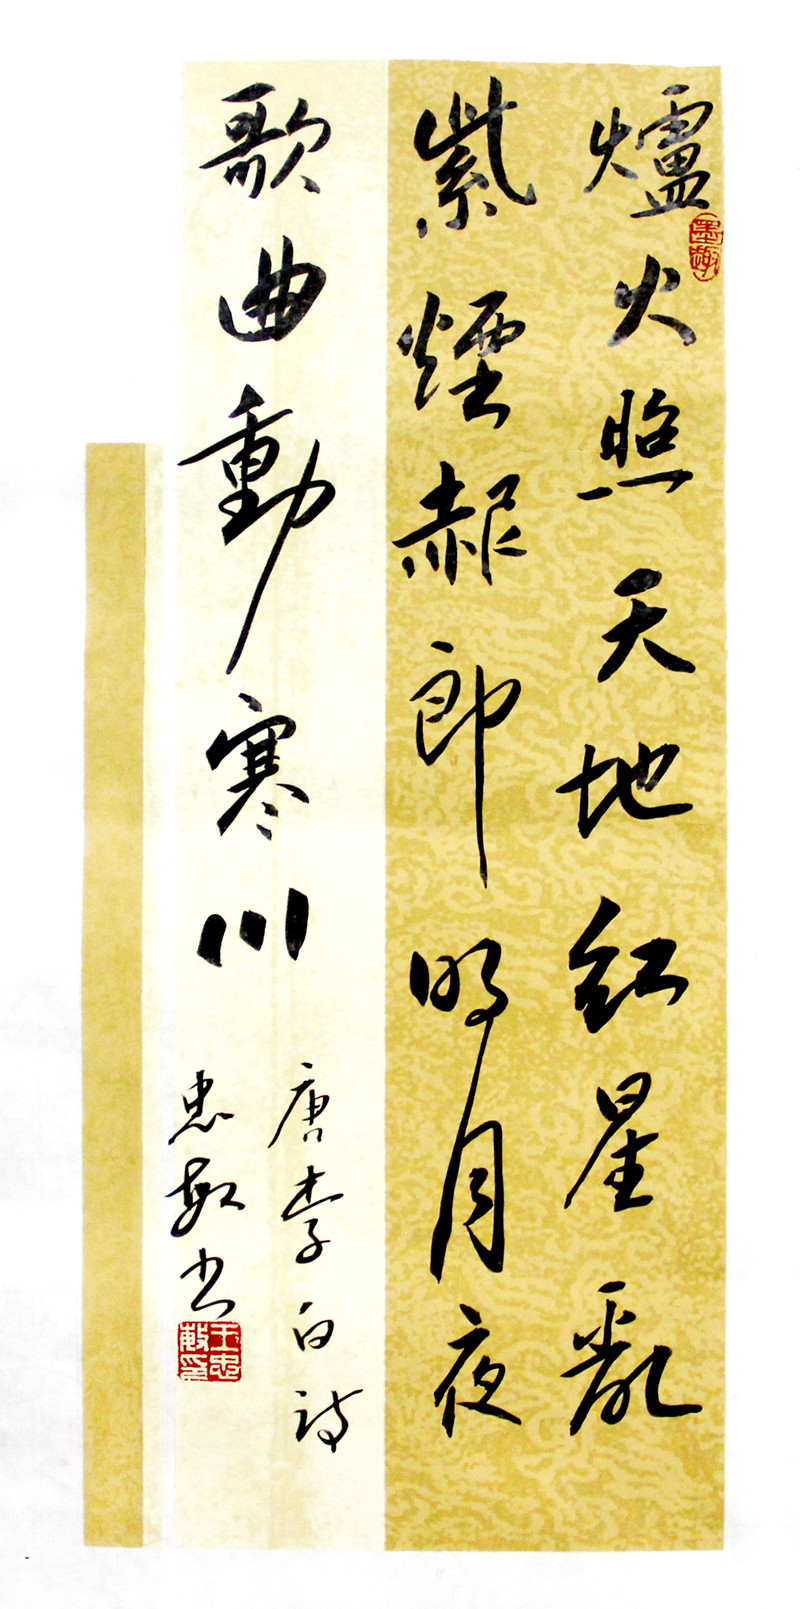 爐火照天地紅星亂
紫煙赧郎明月夜
歌曲動寒川
唐李白詩
忠敏书
墨趣
王忠敏印